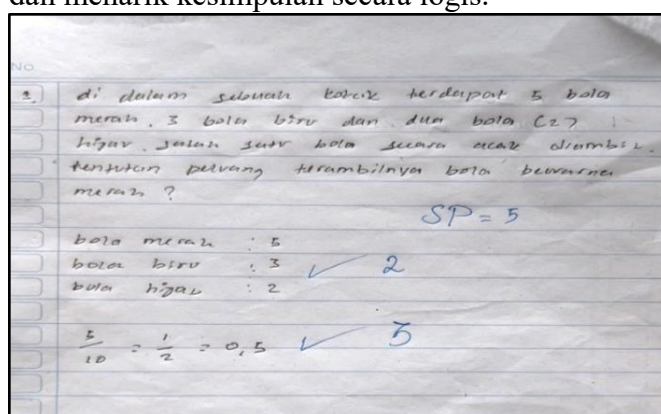 dan menarik kesimpulan secara logis.
No
2. di dalam sebuah kotak terdapat 5 bola
merah, 3 bola biru dan dua bola (2)
hijau. salah satu bola secara acak diambil.
tentukan peluang terambilnya bola berwarna
merah ?
SP = 5
bola merah : 5
bola biru : 3 ✓ 2
bola hijau : 2
5/10 = 1/2 = 0,5 ✓ 3